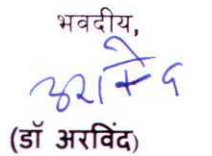 भवदीय,
अरविंद
(डॉ अरविंद)